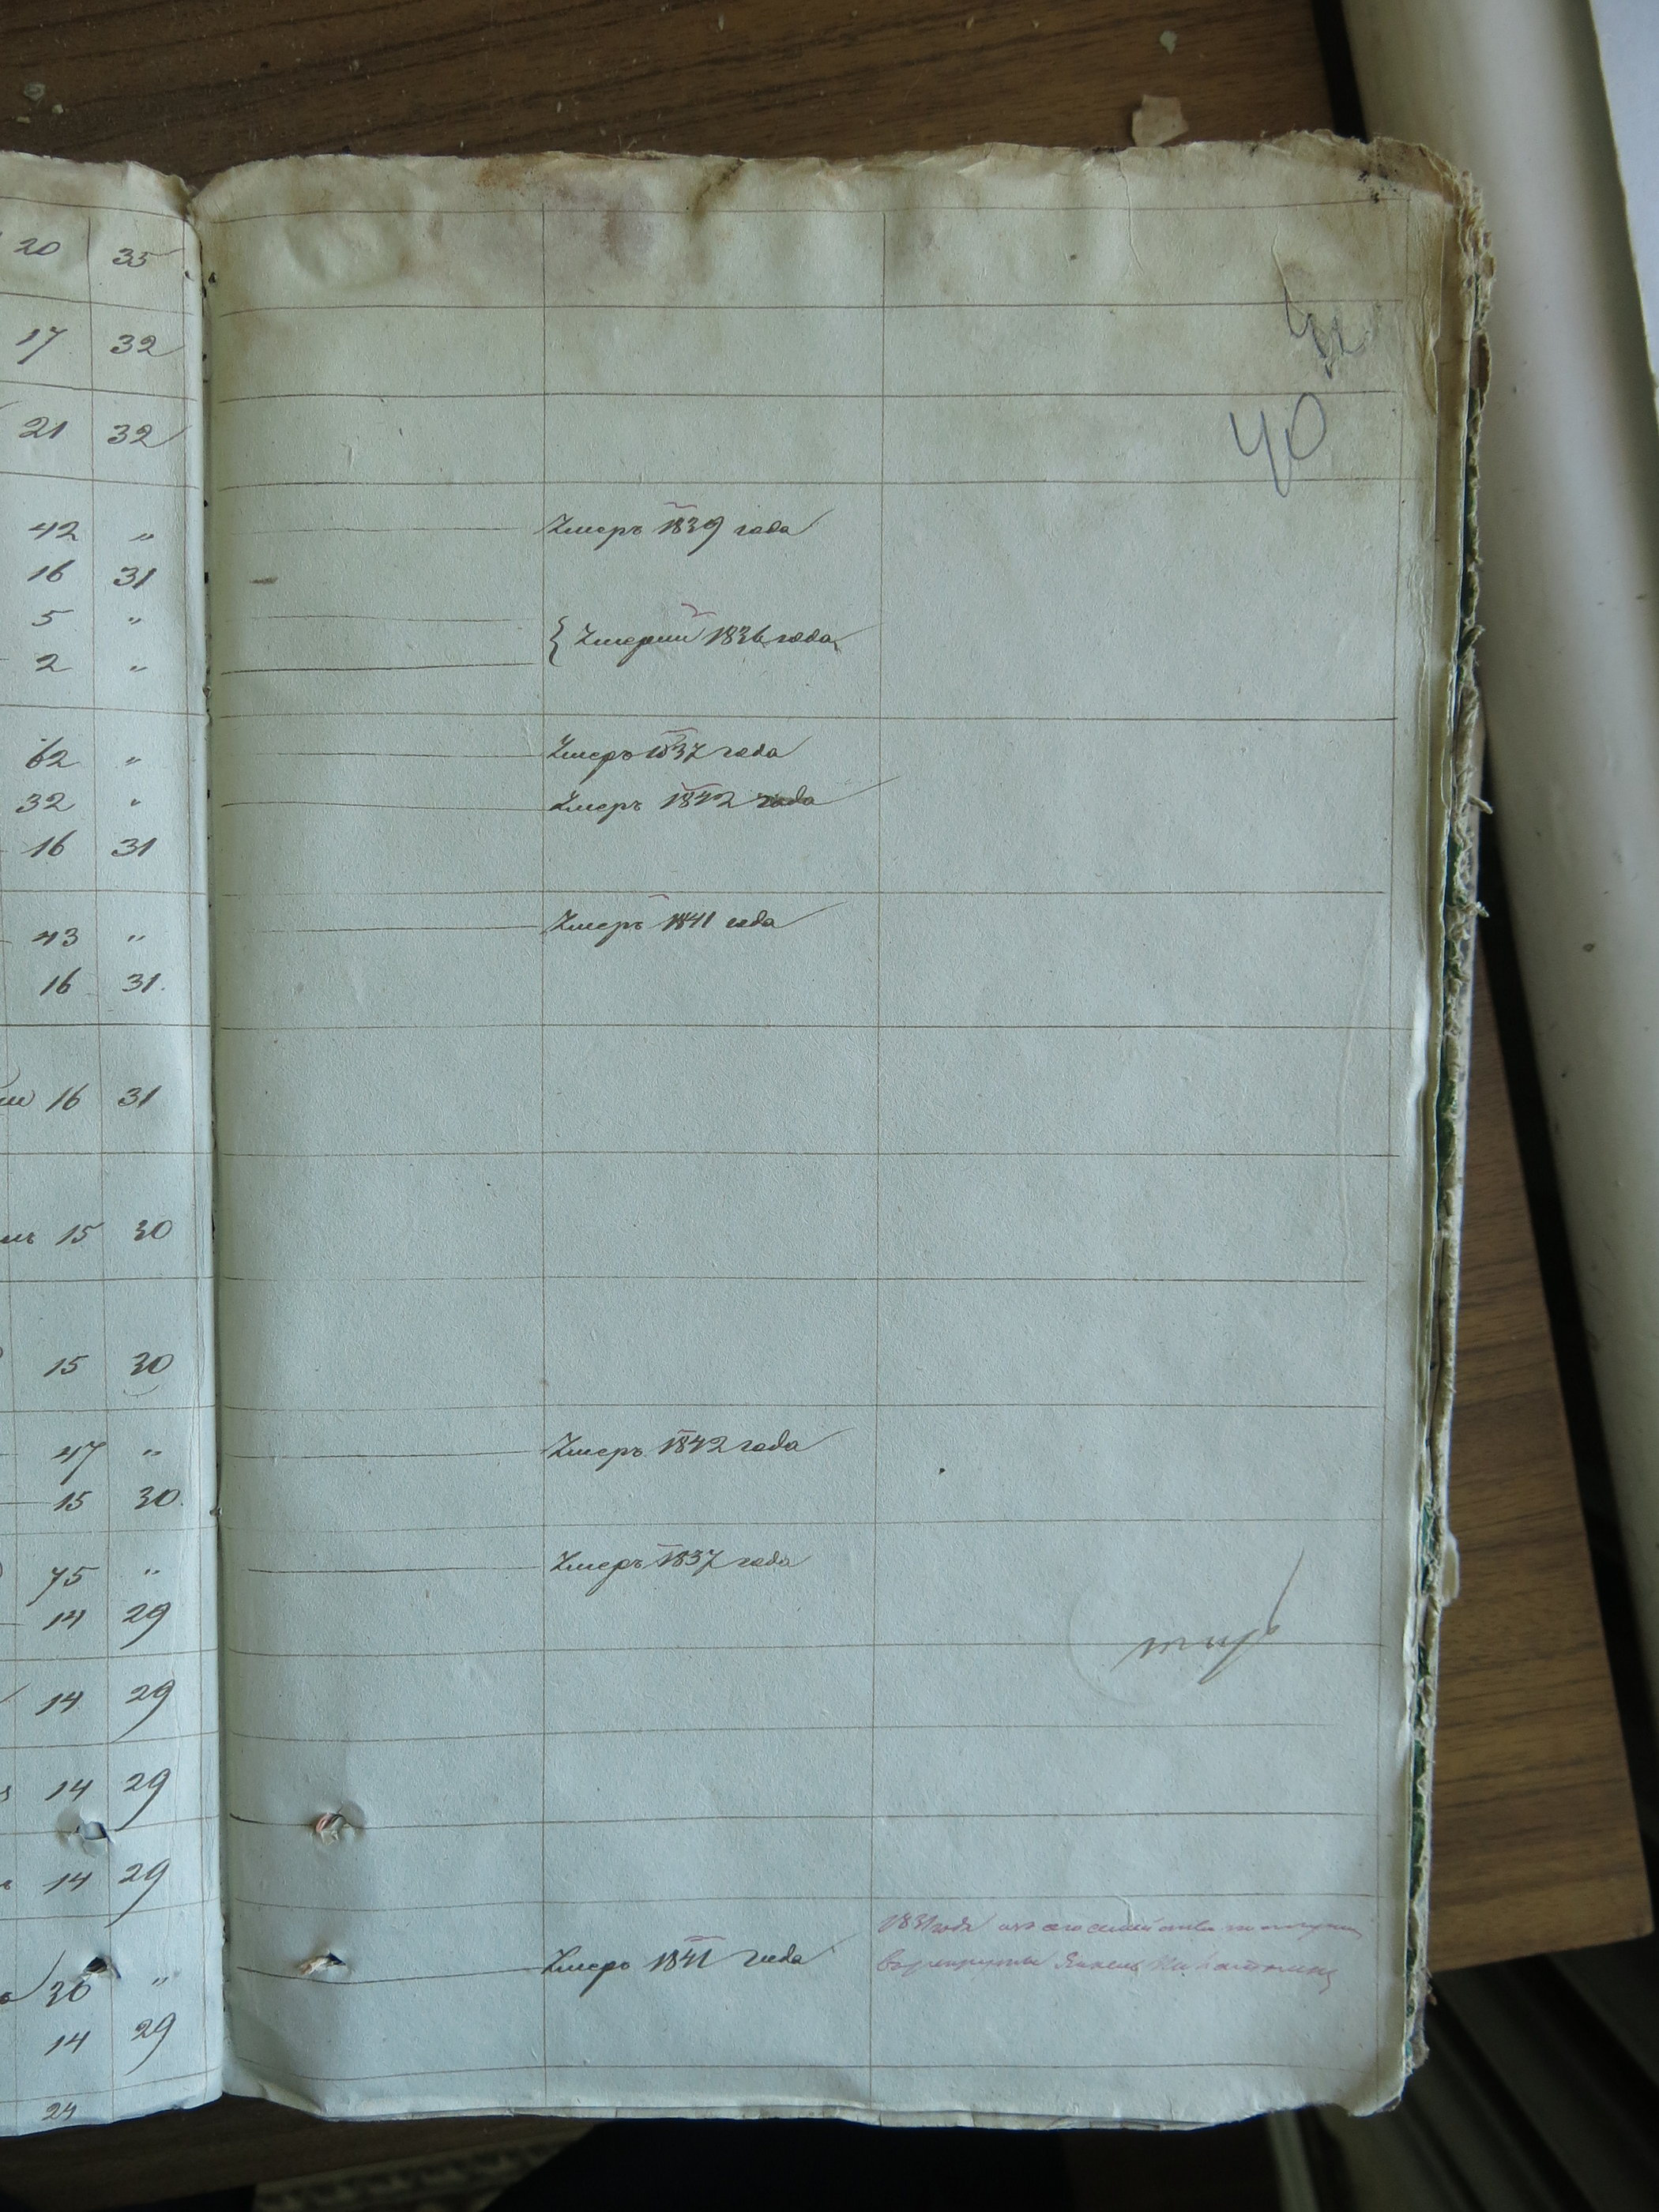 20 35
17 32
21 32
40
42 „ Умеръ 1839 года
16 31
5 „
Умерли 1836 года
2 „
62 „ Умеръ 1837 года
32 „ Умеръ 1842 года
16 31
43 „ Умеръ 1841 года
16 31.
16 31
15 30
15 30
47 „ Умеръ 1842 года
15 30.
75 „ Умеръ 1837 года
14 29
14 29
14 29
14 29
1831 года изъ его семейства
30 „ Умеръ 1841 года
въ рекруты
14 29
24